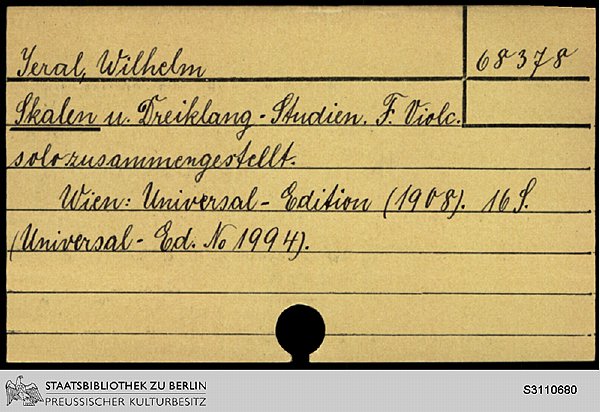 Jeral, Wilhelm
68378
Skalen u. Dreiklang-Studien. F. Violc.
solo zusammengestellt.
Wien: Universal-Edition (1908). 16 S.
(Universal-Ed. No 1994).
STAATSBIBLIOTHEK ZU BERLIN
PREUSSISCHER KULTURBESITZ
S3110680